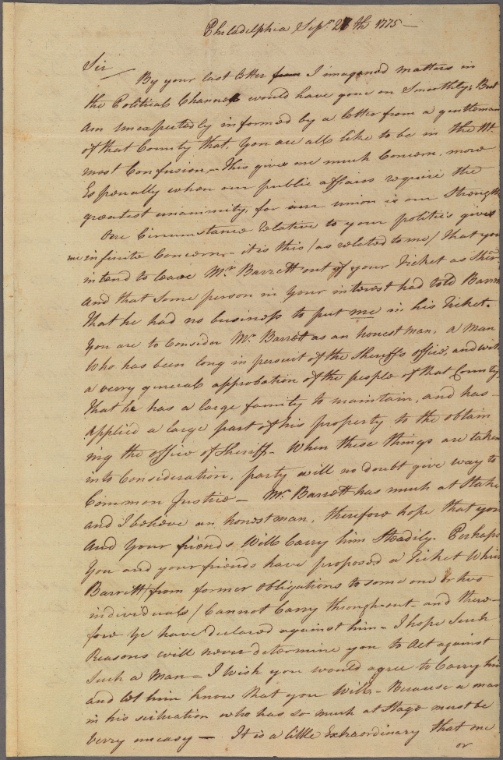 Philadelphia Sepr. 27th 1775 —
Sir —
By your last letter from I imagined matters in
the Political Channel would have gone on Smoothly; But
am Unexpectedly informed by a letter from a gentleman
of that County that you are all like to be in the Ut-
most Confusion — This gives me much Concern, more
Especially when our public affairs require the
greatest unanimity, for our union is our Strength
One Circumstance relative to your politics gives
me infinite Concern — it is this (as related to me) That you
intend to leave Mr. Barrett out of your Ticket as Sheriff
And that Some person in Your interest had told Barrett
That he had no business to put me in his Ticket.
You are to Consider Mr. Barrett as an honest man, a man
Who has been long in persuit of the Sheriffs office, and with
a very general approbation of the people of that County
That he has a large family to maintain, and has
Applied a large part of his property to the obtain-
ing the office of Sheriff — When these things are taken
into Consideration, party will no doubt give way to
Common Justice — Mr. Barrett has much at Stake
and I believe an honest man, therefore hope that you
And Your friends Will Carry him Steadily. Perhaps
You and your friends have proposed a Ticket Which
Barrett (from former obligations to some one or two
individuals) Cannot Carry throughout — and there-
fore Ye have declared against him — I hope Such
Reasons will never determine you to Act against
Such a Man — I wish you would agree to Carry him
and let him know that you Will — Because a man
in his situation who has so much at Stage must be
very uneasy — It is a little extraordinary that one
or